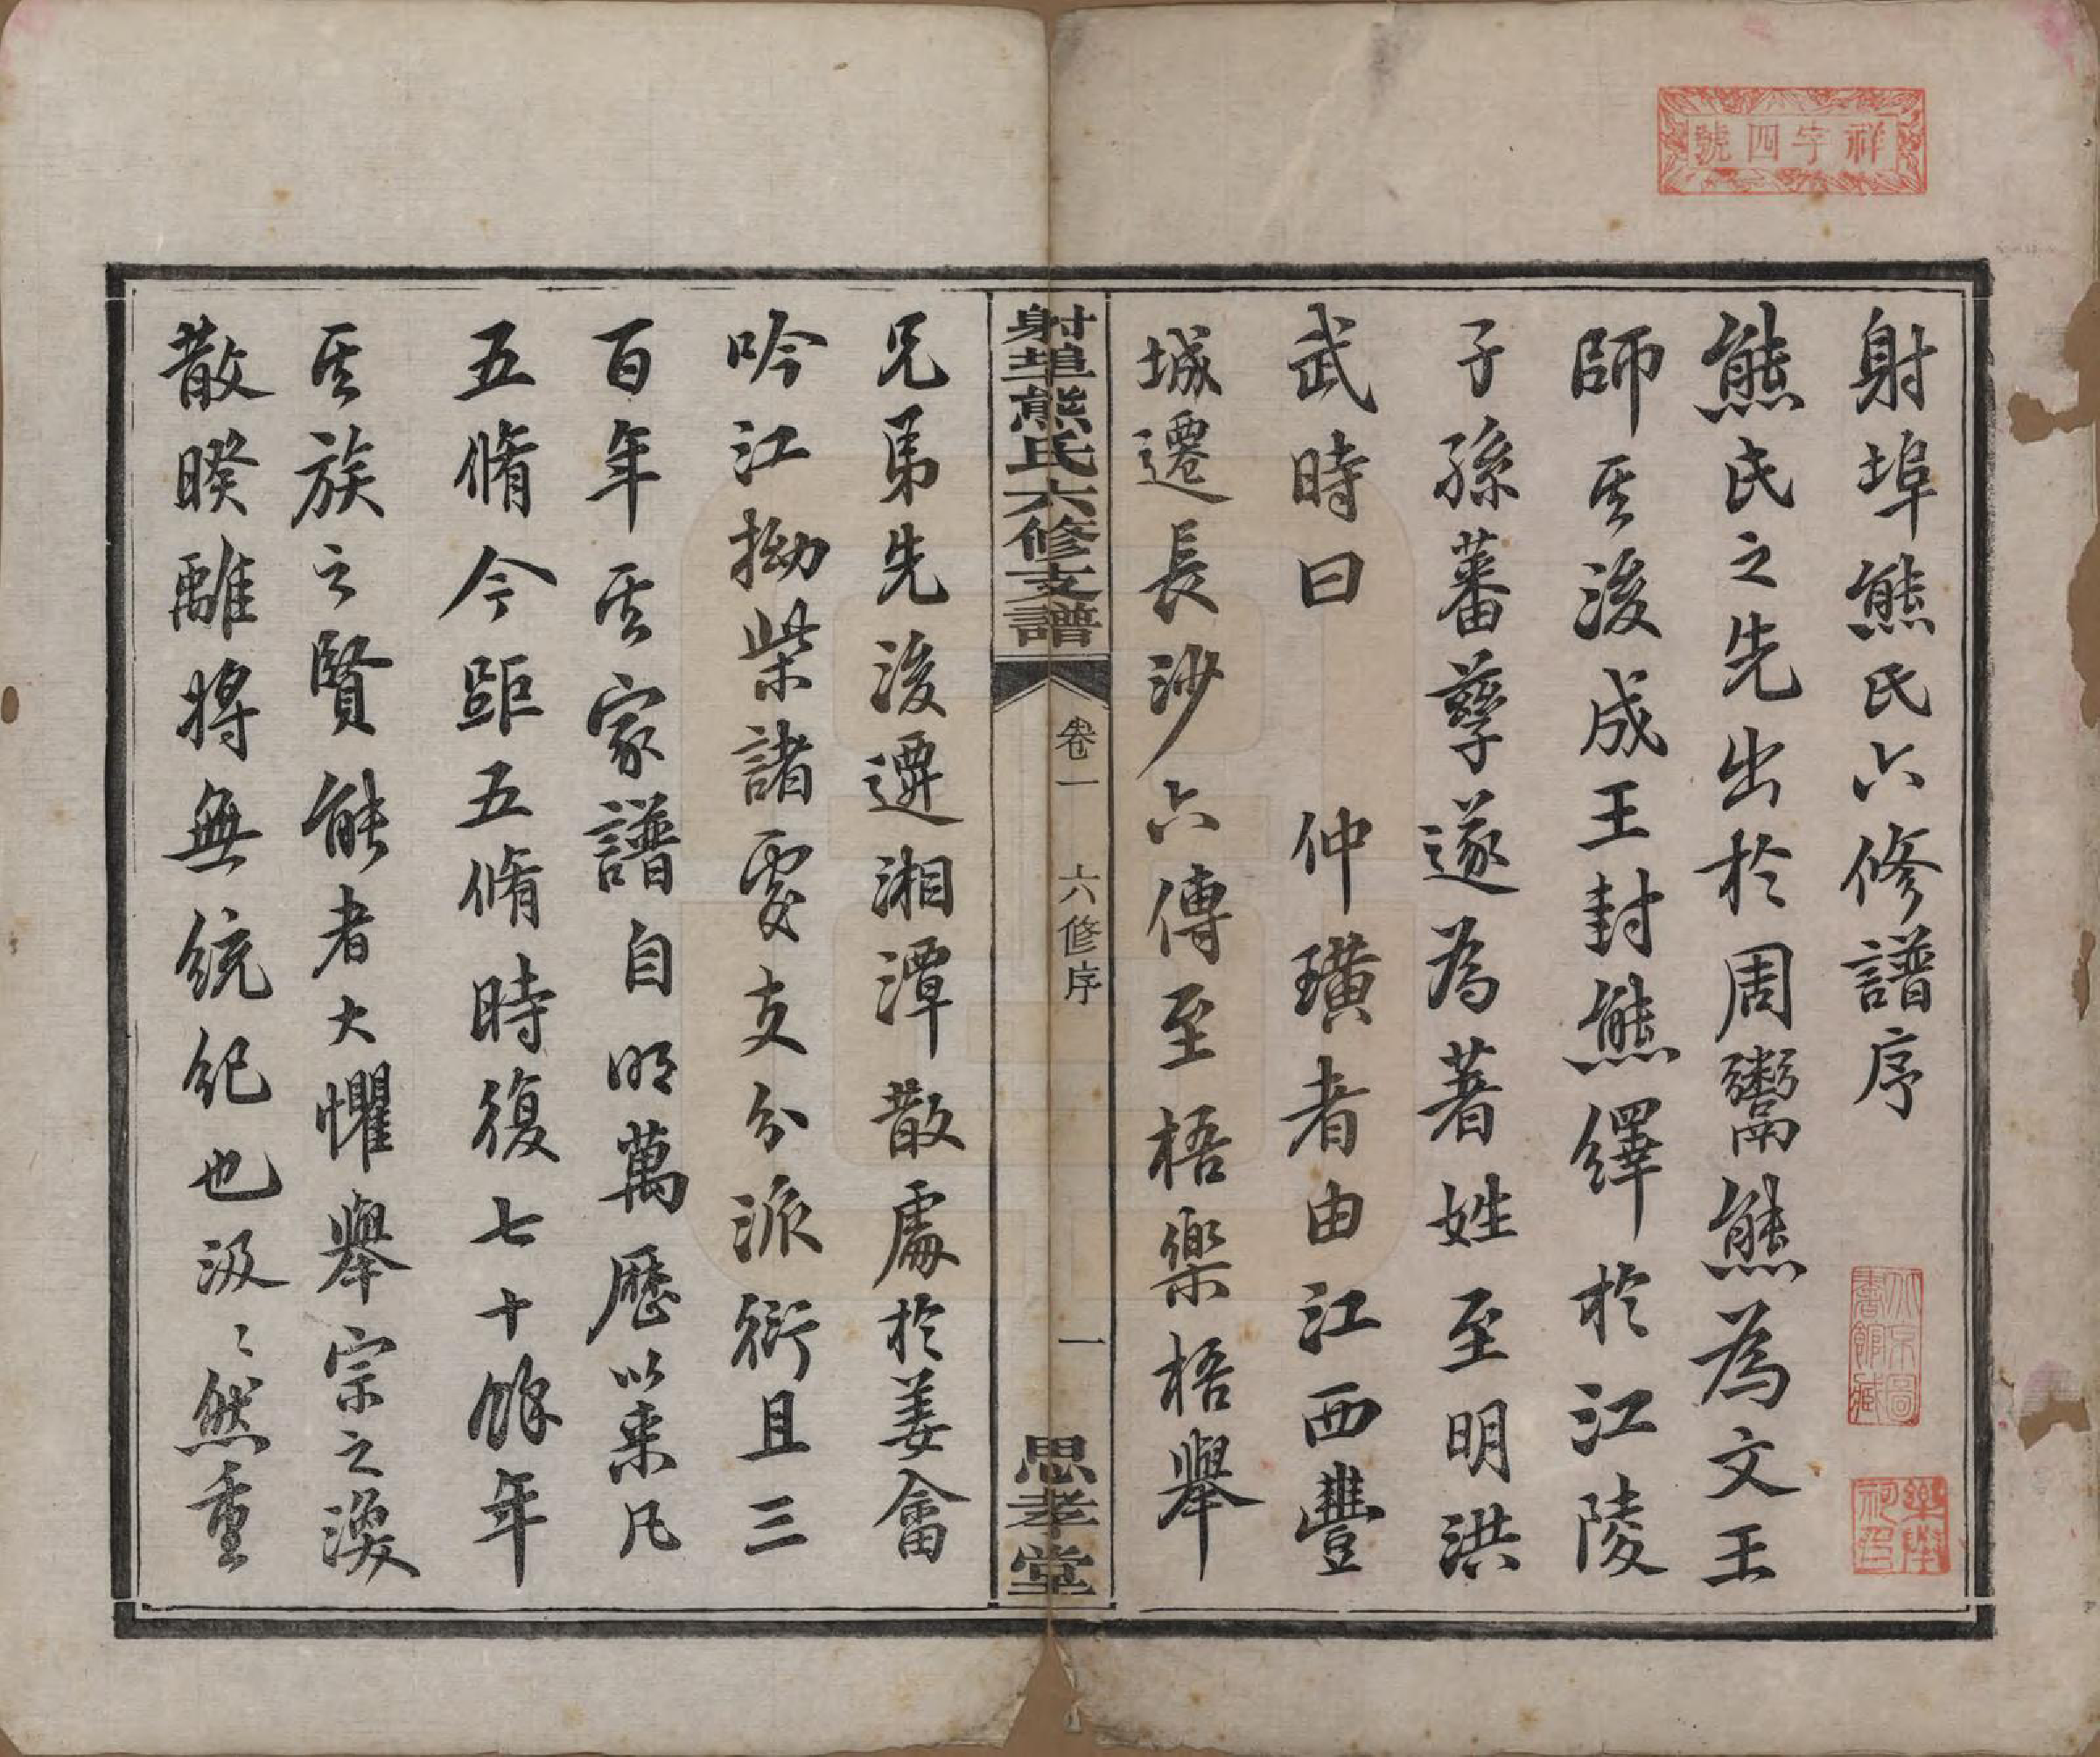 祥字四號
射埠熊氏六修譜序
熊氏之先出於周鬻熊為文王
師其後成王封熊繹於江陵
子孫蕃孳遂為著姓至明洪
武時曰 仲璜者由江西豐
城遷長沙六傳至梧樂梧舉
射埠熊氏六修支譜 卷一 六修序 一 思孝堂
兄弟先後遷湘潭散處於姜畬
吟江拗柴諸處支分派衍且三
百年其家譜自明萬歷以来凡
五脩今距五脩時復七十餘年
其族之賢能者大懼舉宗之渙
散暌離將無統紀也汲〻然重